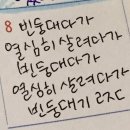 8 빈둥대다가
열심히 살려다가
빈둥대다가
열심히 살려다가
빈둥대기 2255